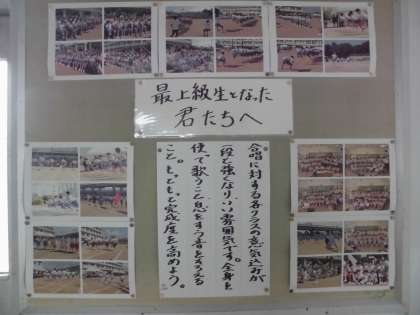 最上級生となった
君たちへ
合唱に対する各クラスの意気込みが
一段と強くなりいい雰囲気です。全身を
使って歌うこと息をすう音をそろえる
こと。もっともっと完成度を高めよう。